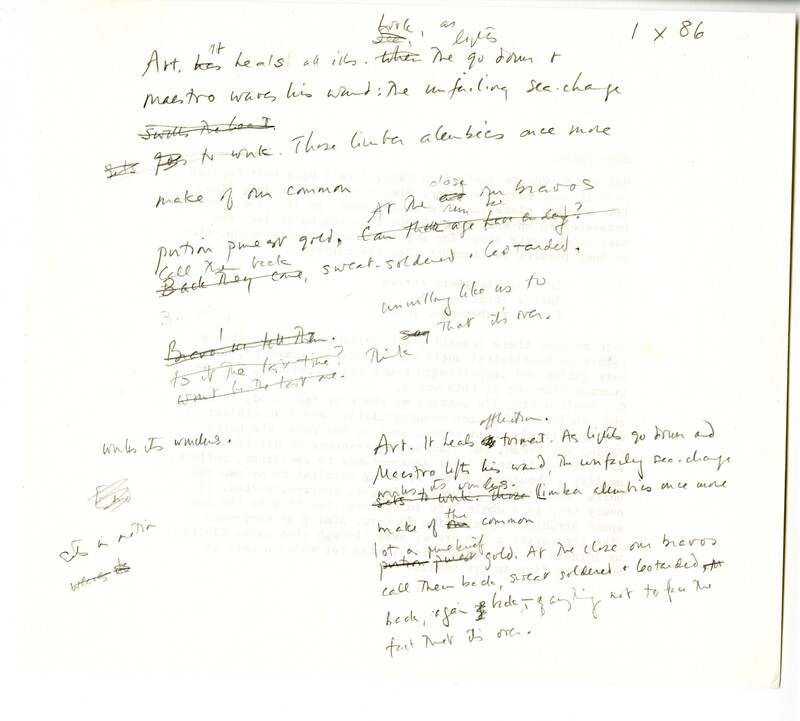 1 x 86
look, as
it see, lights
Art. has heals all ills. when the go down +
Maestro waves his wand: the unfailing sea-change
swells the heart
sets goes to work. Those limber alembics once more
make of our common
At the close our bravos
portion purest gold.
call them back
Back they come, sweat-soldered + leotarded.
3.
unwilling like us to
say that it's over.
Bravo! we tell them.
Is it the last time? Think
won't be the last one.
works its wonders.
sets in motion
affliction.
Art. It heals torment. As lights go down and
Maestro lifts his wand, the unfailing sea-change
works its wonders.
sets to work. those limber alembics once more
make of the our common
lot a pure brief
portion purest gold. At the close our bravos
call them back, sweat soldered + leotarded,
back, again back, anything not to face the
fact that it's over.